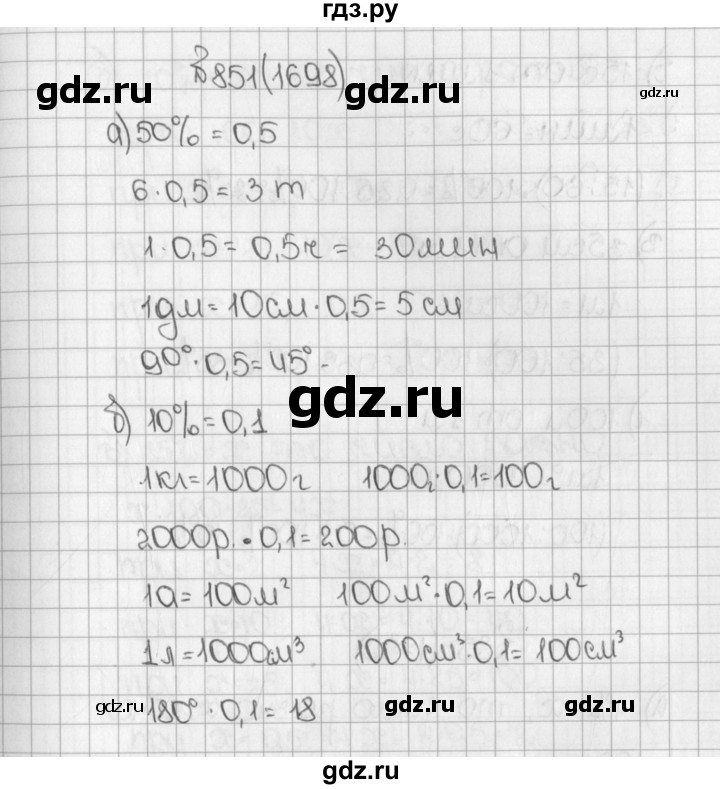 гдз.ру
№851(1698)
gdz.ru gdz.ru gdz.ru
а) 50% = 0,5
6·0,5 = 3 т
1·0,5 = 0,5ч = 30мин
1дм = 10см·0,5 = 5 см
90°·0,5 = 45°
gdz.ru
б) 10% = 0,1
1кг = 1000г 1000г·0,1 = 100г
2000р.·0,1 = 200р.
1а = 100м² 100м²·0,1 = 10м²
1л = 1000см³ 1000см³·0,1 = 100см³
gdz.ru 180°·0,1 = 18 gdz.ru gdz.ru
gdz.ru